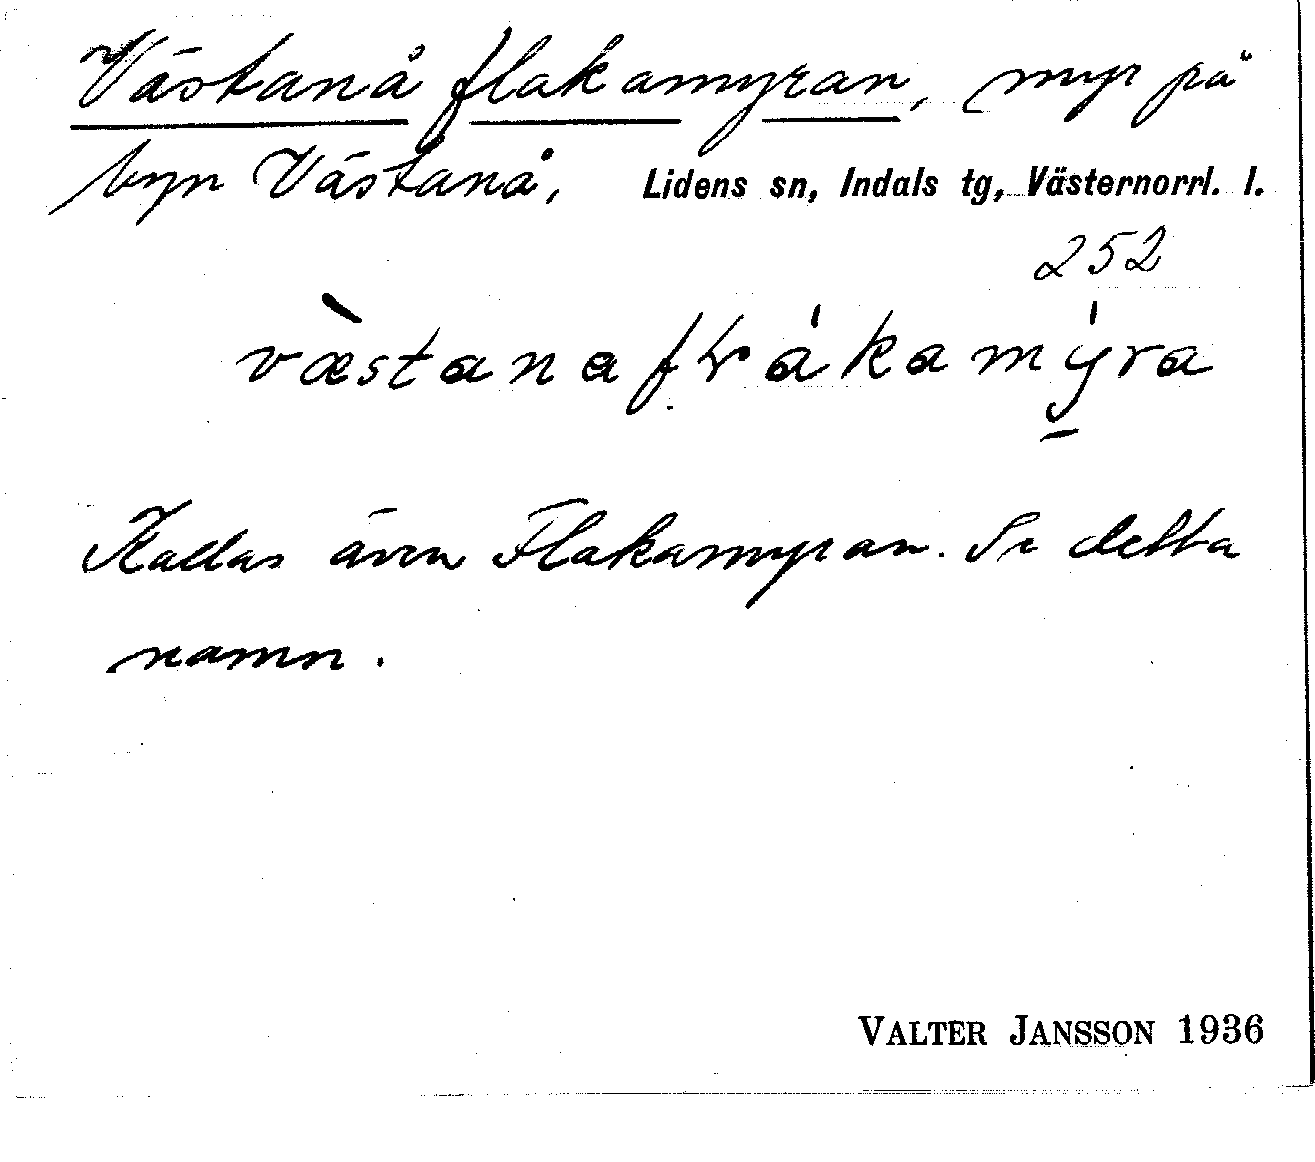 Västanå flakamyran, myr på
byn Västanå, Lidens sn, Indals tg, Västernorrl. l.
252
Kallas även Flakamyran. Se detta
namn.
VALTER JANSSON 1936